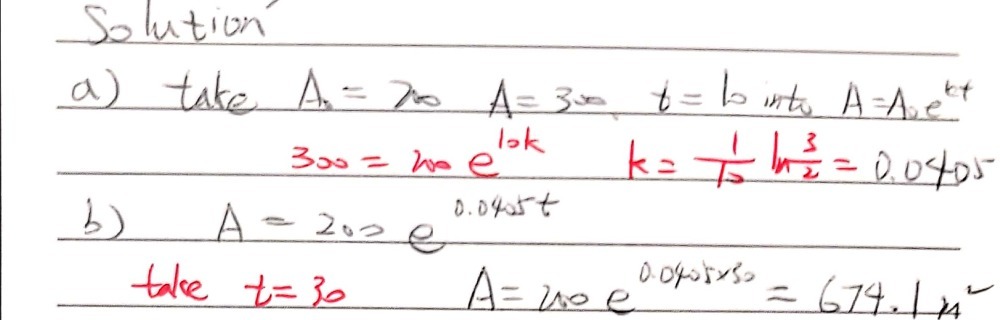 Solution
a) take A₀ = 200 A = 300 t = 10 into A = A₀e^kt
300 = 200 e^10k k = 1/10 ln 3/2 = 0.0405
b) A = 200 e^0.0405t
take t = 30 A = 200 e^0.0405×30 = 674.1 m²